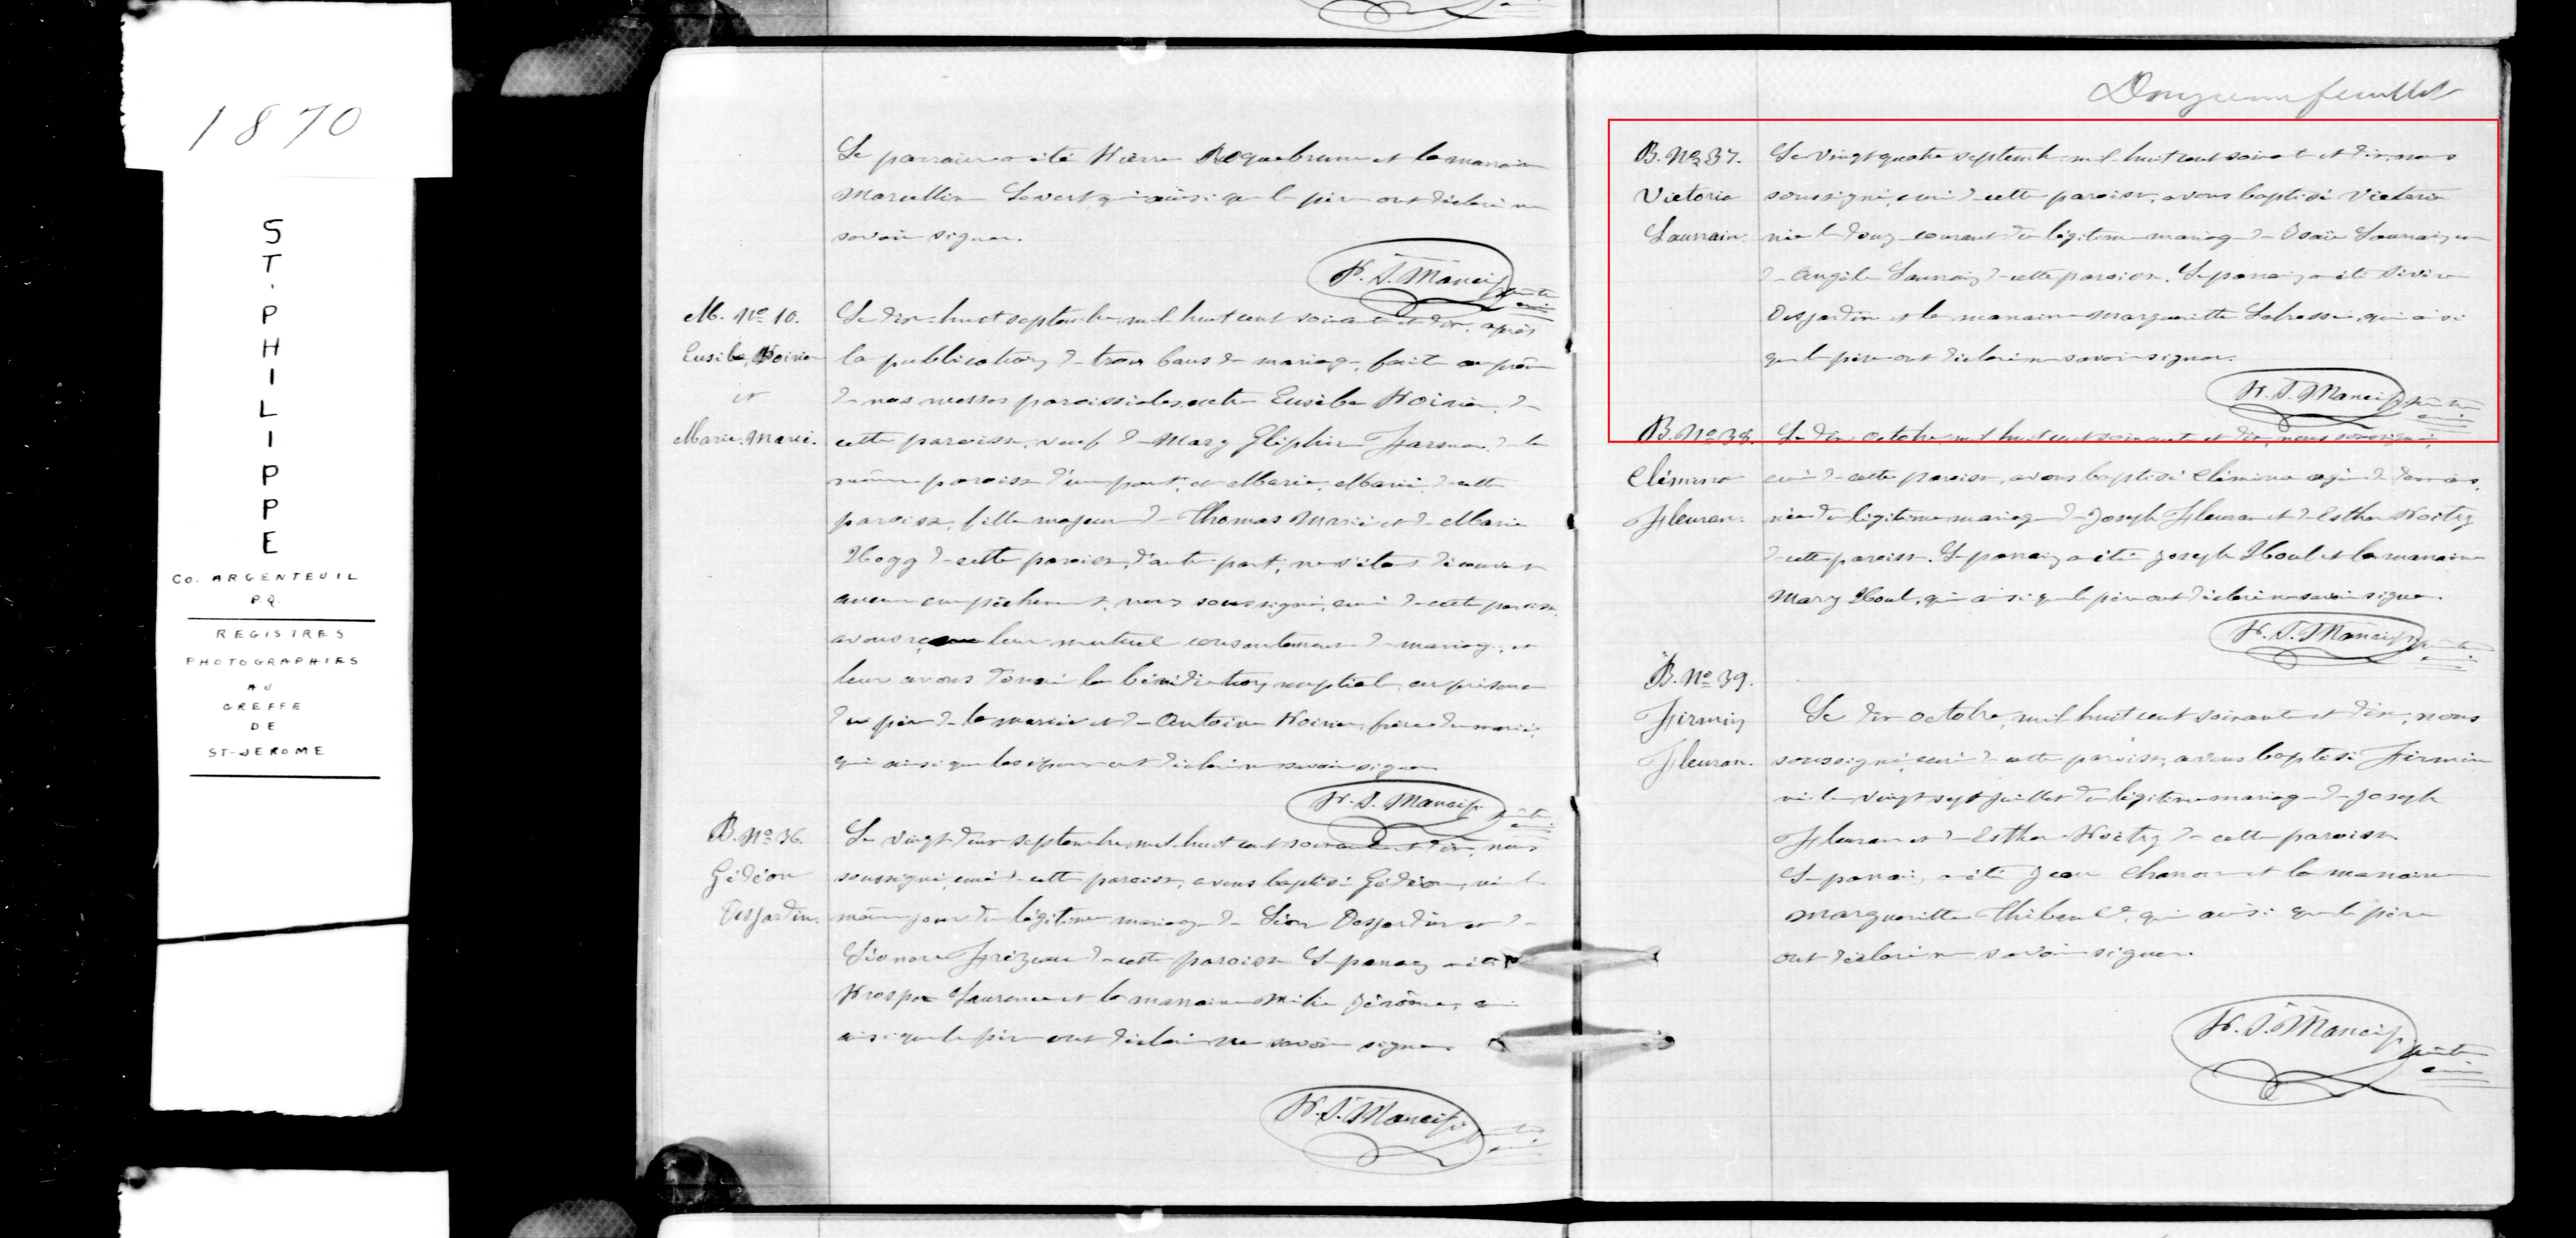 1870
ST. PHILIPPE
CO. ARGENTEUIL
P.Q.
REGISTRES
PHOTOGRAPHIES
AU
GREFFE
DE
ST-JEROME
Le parrain a été Pierre Roquebrune et la marraine
Marcelline Levert qui ainsi que le père ont déclaré ne
savoir signer.
P. S. Mancip ptre
curé
M. No 10.
Eusèbe Poirier
et
Marie Marié.
Le dix-huit septembre, mil huit cent soixante et dix, après
la publication de trois bans de mariage, faite au prône
de nos messes paroissiales, entre Eusèbe Poirier, de
cette paroisse, veuf de Mary de la
même paroisse d'une part, et Marie Marié, de cette
paroisse, fille majeure de Thomas Marié et de Marie
Hogg de cette paroisse, d'autre part, ne s'étant découvert
aucun empêchement, nous soussigné, curé de cette paroisse,
avons reçu leur mutuel consentement de mariage, et
leur avons donné la bénédiction nuptiale en présence
du père de la mariée et de Antoine Poirier, frère du marié,
qui ainsi que les époux ont déclaré ne savoir signer
P. S. Mancip ptre
curé
B. No 36.
Gédéon
Desjardin.
Le vingt-deux septembre, mil huit cent soixante et dix, nous
soussigné, curé de cette paroisse, avons baptisé Gédéon, né le
même jour du légitime mariage de Léon Desjardin et de
Léonore Frizeau de cette paroisse Le parrain a été
Prosper Laurence et la marraine Mélie Jérôme, qui
ainsi que le père ont déclaré ne savoir signer.
P. S. Mancip ptre
curé
Douzième feuillet
B. No 37.
Victoria
Laurrain.
Le vingt quatre septembre, mil huit cent soixante et dix, nous
soussigné, curé de cette paroisse, avons baptisé Victoria
née le douze courant du légitime mariage de Isaïe Laurrain et
de Angèle de cette paroisse. Le parrain a été Sévère
Desjardin et la marraine Margueritte Labrosse, qui ainsi
que le père ont déclaré ne savoir signer.
P. S. Mancip ptre
curé
B. No 38.
Clémina
Fleuran.
Le dix octobre, mil huit cent soixante et dix, nous soussigné,
curé de cette paroisse, avons baptisé Clémina agée de
née du légitime mariage de Joseph Fleuran et de Esther
de cette paroisse. Le parrain a été Joseph Houl et la marraine
Mary Houl, qui ainsi que le père ont déclaré ne savoir signer.
P. S. Mancip ptre
curé
B. No 39.
Firmin
Fleuran.
Le dix octobre, mil huit cent soixante et dix, nous
soussigné, curé de cette paroisse, avons baptisé Firmin
né le vingt sept juillet du légitime mariage de Joseph
Fleuran et de Esther de cette paroisse
Le parrain a été Jean et la marraine
Margueritte qui ainsi que le père
ont déclaré ne savoir signer.
P. S. Mancip ptre
curé